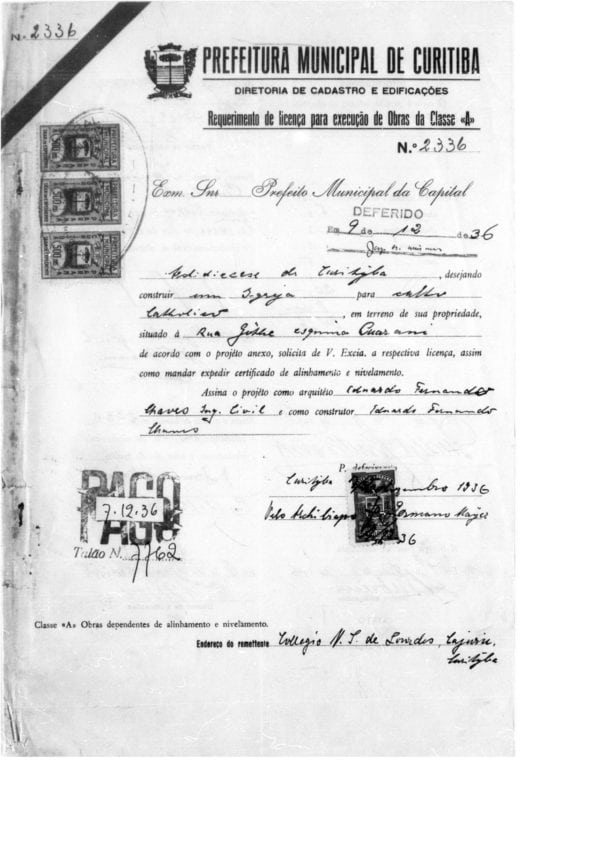 N. 2336
PREFEITURA MUNICIPAL DE CURITIBA
DIRETORIA DE CADASTRO E EDIFICAÇÕES
Requerimento de licença para execução de Obras da Classe «A»
N.º 2336
Exm. Snr Prefeito Municipal da Capital
DEFERIDO
Em 9 de 12 de 36
de Curityba, desejando
construir uma Igreja para culto
Catholico, em terreno de sua propriedade,
situado à Rua Göthe esquina Guarani
de acordo com o projéto anexo, solicita de V. Excia. a respectiva licença, assim
como mandar expedir certificado de alinhamento e nivelamento.
Assina o projéto como arquitéto Eduardo Fernando
Chaves Eng. Civil e como construtor Eduardo Fernando
Chaves
P. deferimento
Curityba 1936
PAGO
7.12.36
Talão N. 7762
Pelo Germano
36
Classe «A» Obras dependentes de alinhamento e nivelamento.
Endereço do remettente Collegio N. S. de Lourdes, Cajuru,
Curityba